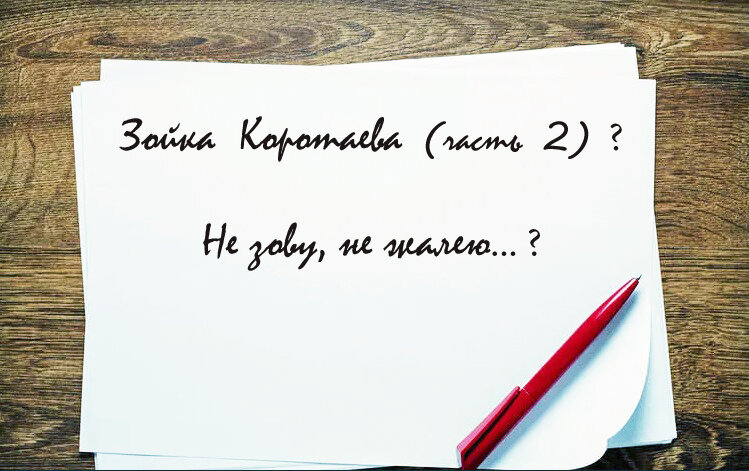 Зойка Коротаева (часть 2) ?
Не зову, не жалею... ?